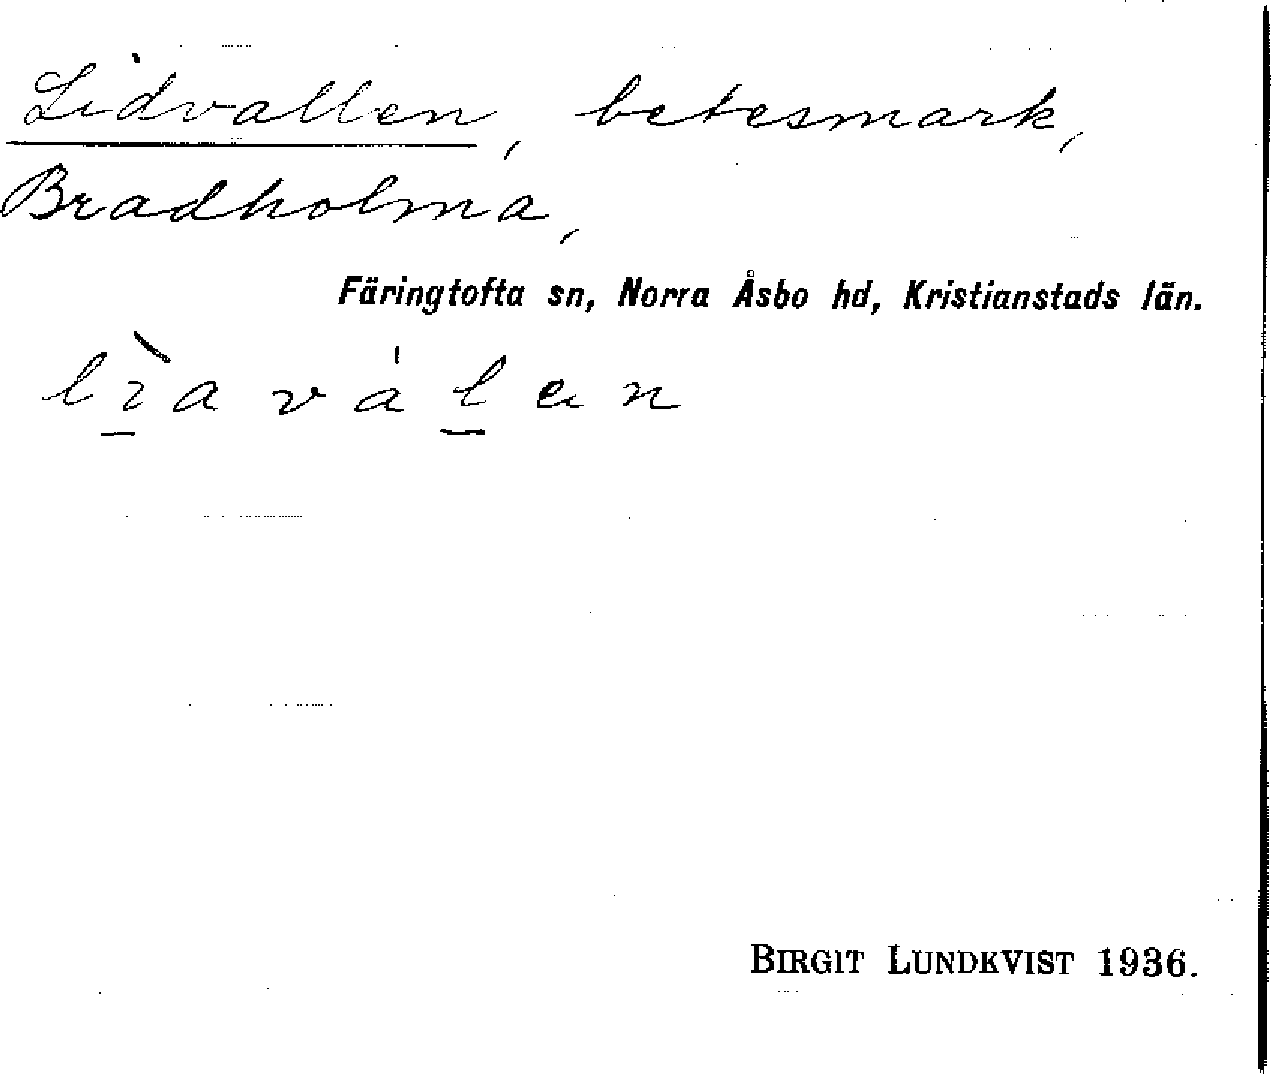 Lidvallen, betesmark,
Bradholma,
Färingtofta sn, Norra Åsbo hd, Kristianstads län.
lı̱̀a vá ḻ en
BIRGIT LUNDKVIST 1936.